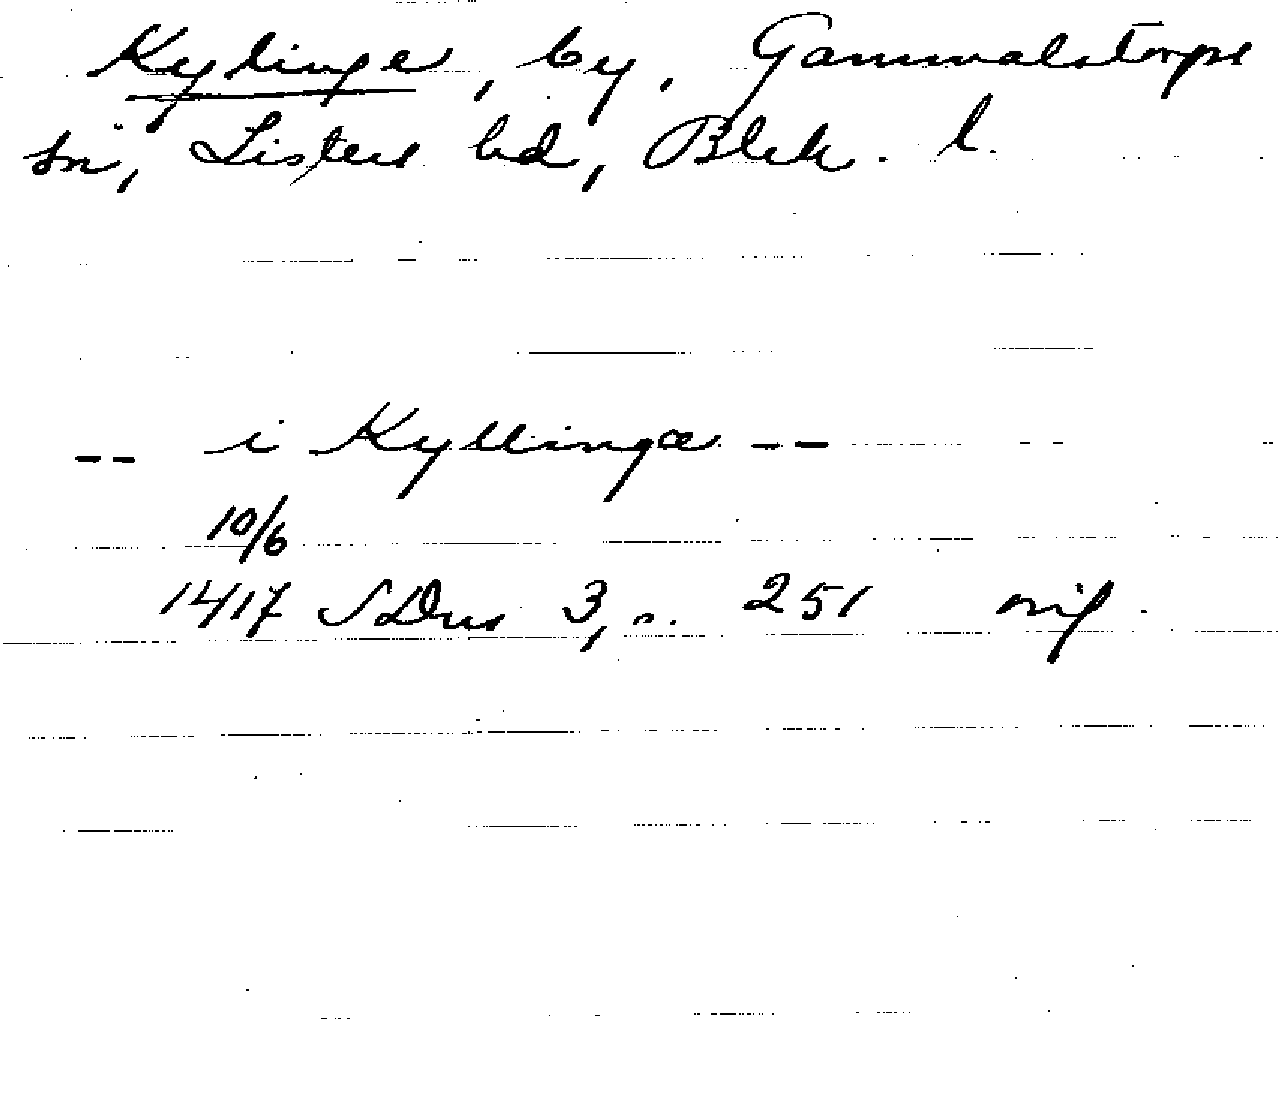 Kylinge, by, Gammalstorps
sn, Listers hd, Blek. l.
-- i Kyllingæ --
10/6
1417 SDns 3, s. 251 orig.